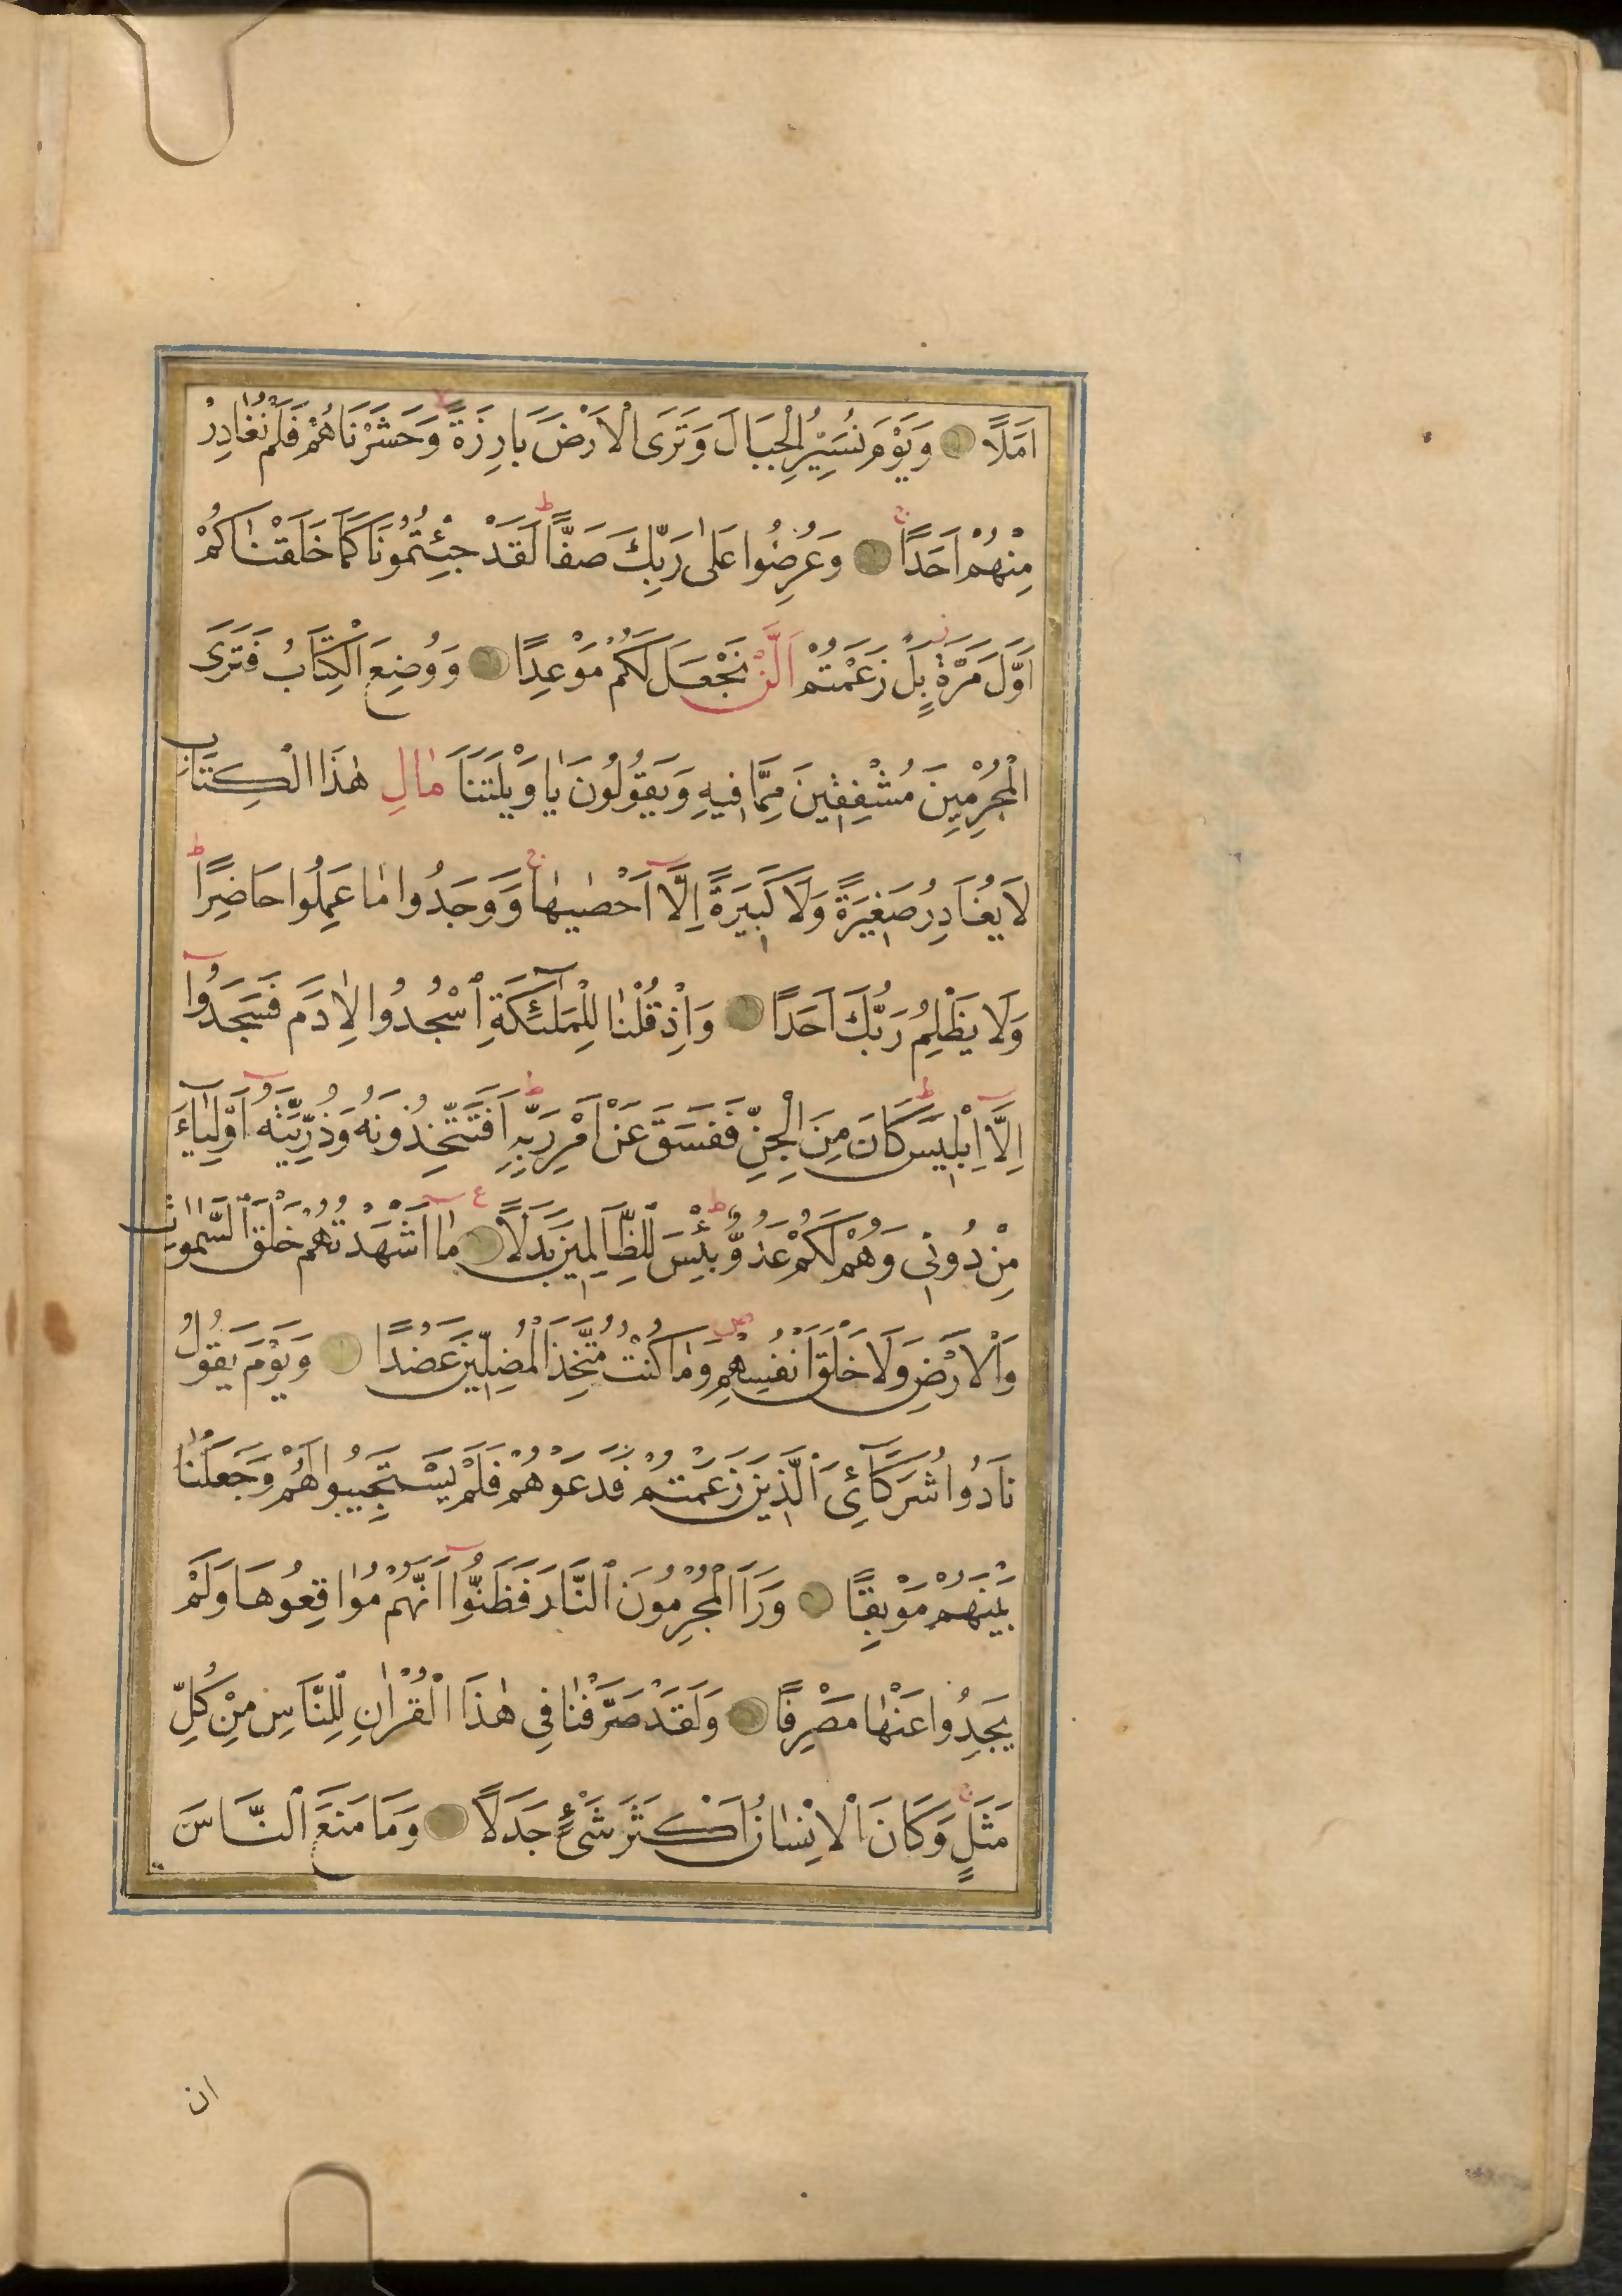 اَمَلًا وَيَوْمَ نُسَيِّرُ الْجِبَالَ وَتَرَى الْاَرْضَ بَارِزَةً وَحَشَرْنَاهُمْ فَلَمْ نُغَادِرْ
مِنْهُمْ اَحَدًا وَعُرِضُوا عَلٰى رَبِّكَ صَفًّا لَقَدْ جِئْتُمُونَا كَمَا خَلَقْنَاكُمْ
اَوَّلَ مَرَّةٍ بَلْ زَعَمْتُمْ اَلَّنْ نَجْعَلَ لَكُمْ مَوْعِدًا وَوُضِعَ الْكِتَابُ فَتَرَى
الْمُجْرِمِينَ مُشْفِقِينَ مِمَّا فِيهِ وَيَقُولُونَ يَا وَيْلَتَنَا مَالِ هٰذَا الْكِتَابِ
لَا يُغَادِرُ صَغِيرَةً وَلَا كَبِيرَةً اِلَّا اَحْصٰيهَا وَوَجَدُوا مَا عَمِلُوا حَاضِرًا
وَلَا يَظْلِمُ رَبُّكَ اَحَدًا وَاِذْ قُلْنَا لِلْمَلٰٓئِكَةِ اسْجُدُوا لِاٰدَمَ فَسَجَدُوا
اِلَّا اِبْلِيسَ كَانَ مِنَ الْجِنِّ فَفَسَقَ عَنْ اَمْرِ رَبِّهِ اَفَتَتَّخِذُونَهُ وَذُرِّيَّتَهُ اَوْلِيَاءَ
مِنْ دُونِى وَهُمْ لَكُمْ عَدُوٌّ بِئْسَ لِلظَّالِمِينَ بَدَلًا مَا اَشْهَدْتُهُمْ خَلْقَ السَّمٰوَاتِ
وَالْاَرْضِ وَلَا خَلْقَ اَنْفُسِهِمْ وَمَا كُنْتُ مُتَّخِذَ الْمُضِلِّينَ عَضُدًا وَيَوْمَ يَقُولُ
نَادُوا شُرَكَآئِىَ الَّذِينَ زَعَمْتُمْ فَدَعَوْهُمْ فَلَمْ يَسْتَجِيبُوا لَهُمْ وَجَعَلْنَا
بَيْنَهُمْ مَوْبِقًا وَرَاَ الْمُجْرِمُونَ النَّارَ فَظَنُّوا اَنَّهُمْ مُوَاقِعُوهَا وَلَمْ
يَجِدُوا عَنْهَا مَصْرِفًا وَلَقَدْ صَرَّفْنَا فِى هٰذَا الْقُرْاٰنِ لِلنَّاسِ مِنْ كُلِّ
مَثَلٍ وَكَانَ الْاِنْسَانُ اَكْثَرَ شَىْءٍ جَدَلًا وَمَا مَنَعَ النَّاسَ
ان